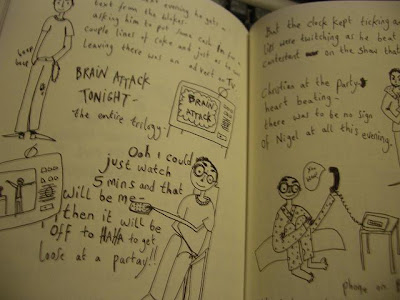 evening he gets
text from the bloke
asking him to put some cash in for a
couple lines of coke and just as he was
leaving there was an advert on TV
beep
beep
BRAIN ATTACK
TONIGHT -
- the entire trilogy -
BRAIN
ATTACK
Ooh I could
just watch
5 mins and that
will be me -
then it will be
off to HAHA to get
loose at a partay!!
But the clock kept ticking a
lids were twitching as he beat
contestant on the show that
Christian at the party
heart beating -
there was to be no sign
of Nigel at all this evening.
phone on